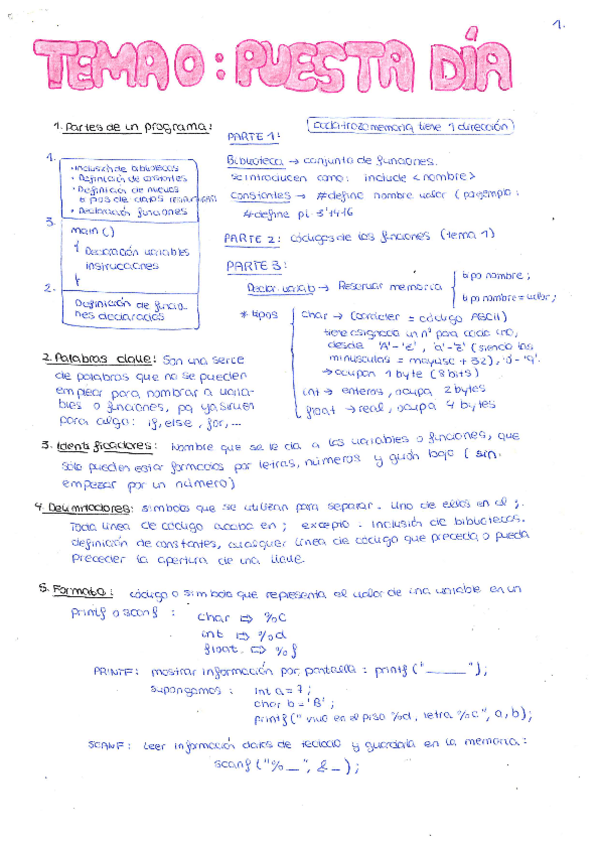 1.
TEMA 0: PUESTA DÍA
1. Partes de un programa:
1.
• Inclusión de bibliotecas
• Definición de constantes
• Definición de nuevos
tipos de datos
• Declaración funciones
3.
main ()
{ Declaración variables
instrucciones
}
2.
Definición de funcio-
nes declaradas
cada trozo memoria tiene 1 dirección
PARTE 1:
Biblioteca → conjunto de funciones.
se introducen como: include <nombre>
constantes → #define nombre valor (p ejemplo:
#define pi 3'1416
PARTE 2: códigos de las funciones (tema 1)
PARTE 3:
Declar. variab → Reservar memoria { tipo nombre;
tipo nombre = valor;
* tipos { char → (carácter = código ASCII)
tiene asignada un nº para cada uno,
desde 'A'-'Z', 'a'-'z' (siendo las
minúsculas = mayusc + 32), '0'-'9'.
→ ocupan 1 byte (8 bits)
int → enteros, ocupa 2 bytes
float → real, ocupa 4 bytes
2. Palabras clave: Son una serie
de palabras que no se pueden
emplear para nombrar a varia-
bles o funciones, pq ya sirven
para algo: if, else, for, ...
3. Identificadores: Nombre que se le da a las variables o funciones, que
sólo pueden estar formados por letras, números y guión bajo (sin
empezar por un número)
4. Delimitadores: símbolos que se utilizan para separar. Uno de ellos en el ;.
Toda línea de código acaba en ; excepto: inclusión de bibliotecas,
definición de constantes, cualquier línea de código que preceda o pueda
preceder la apertura de una llave.
5. Formato: código o símbolo que representa el valor de una variable en un
printf o scanf:
char ⇒ %c
int ⇒ %d
float ⇒ %f
PRINTF: mostrar información por pantalla: printf ("______");
Supongamos: int a = 7;
char b = 'B';
printf (" vivo en el piso %d, letra %c", a, b);
SCANF: Leer información datos de teclado y guardarla en la memoria:
scanf ("%_", &_);